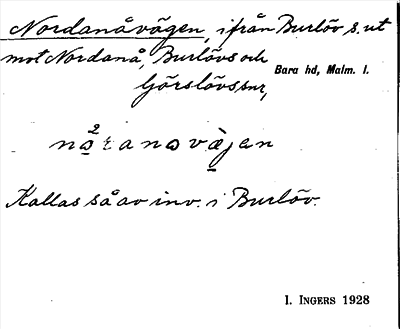 Nordanåvägen, ifrån Burlöv s. ut
mot Nordanå, Burlövs och
Görslövs snr, Bara hd, Malm. l.
Kallas så av inv. i Burlöv.
I. INGERS 1928